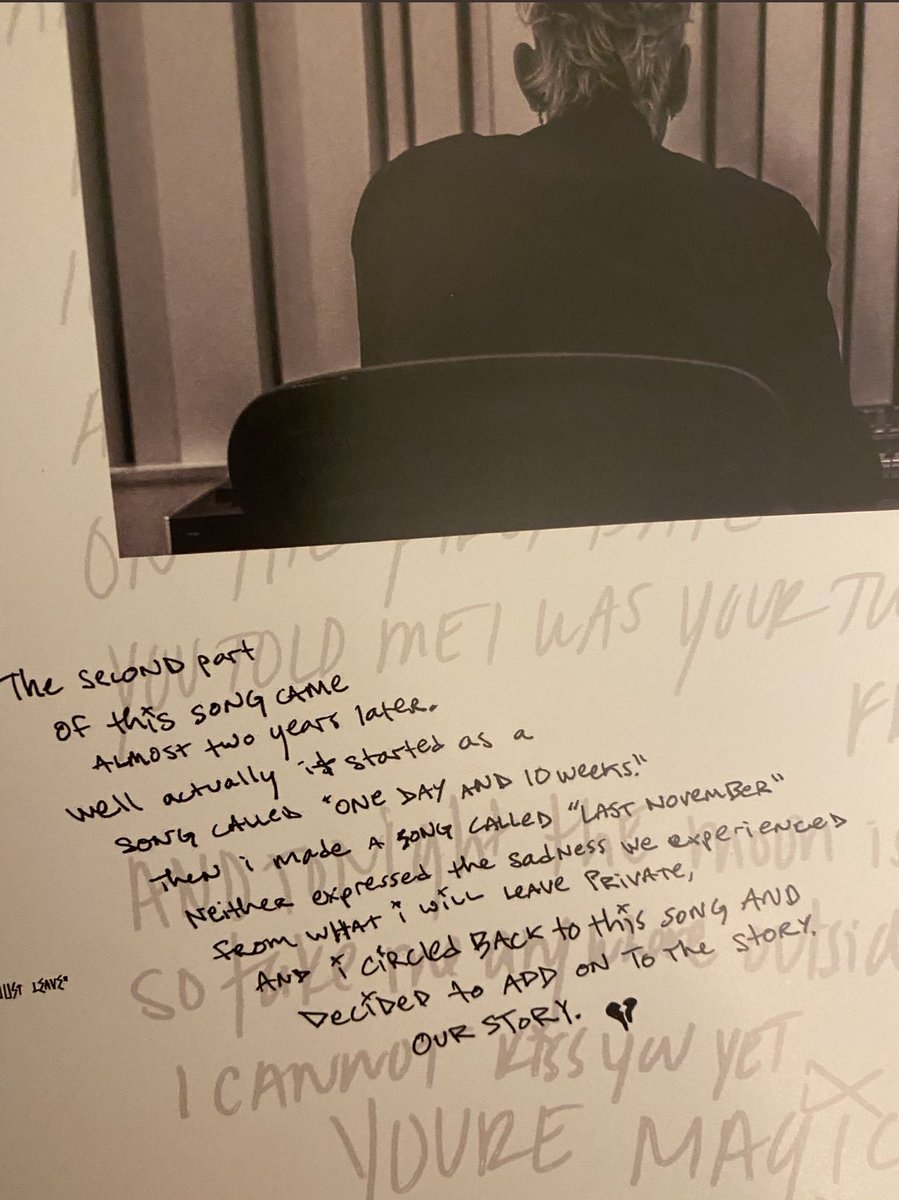 ON THE FIRST DATE
YOU TOLD ME I WAS YOUR TW
The second part
of this song came
almost two years later.
well actually it started as a
song called "ONE DAY AND 10 weeks."
Then i made a song called "LAST NOVEMBER"
Neither expressed the sadness we experienced
from what i will leave private,
AND i circled BACK to this song AND
Decided to ADD ON TO THE STORY.
OUR STORY.
UST LEAVE"
AND TONIGHT the moon is
So take me outside
I CANNOT KISS YOU YET
YOURE MAGIC